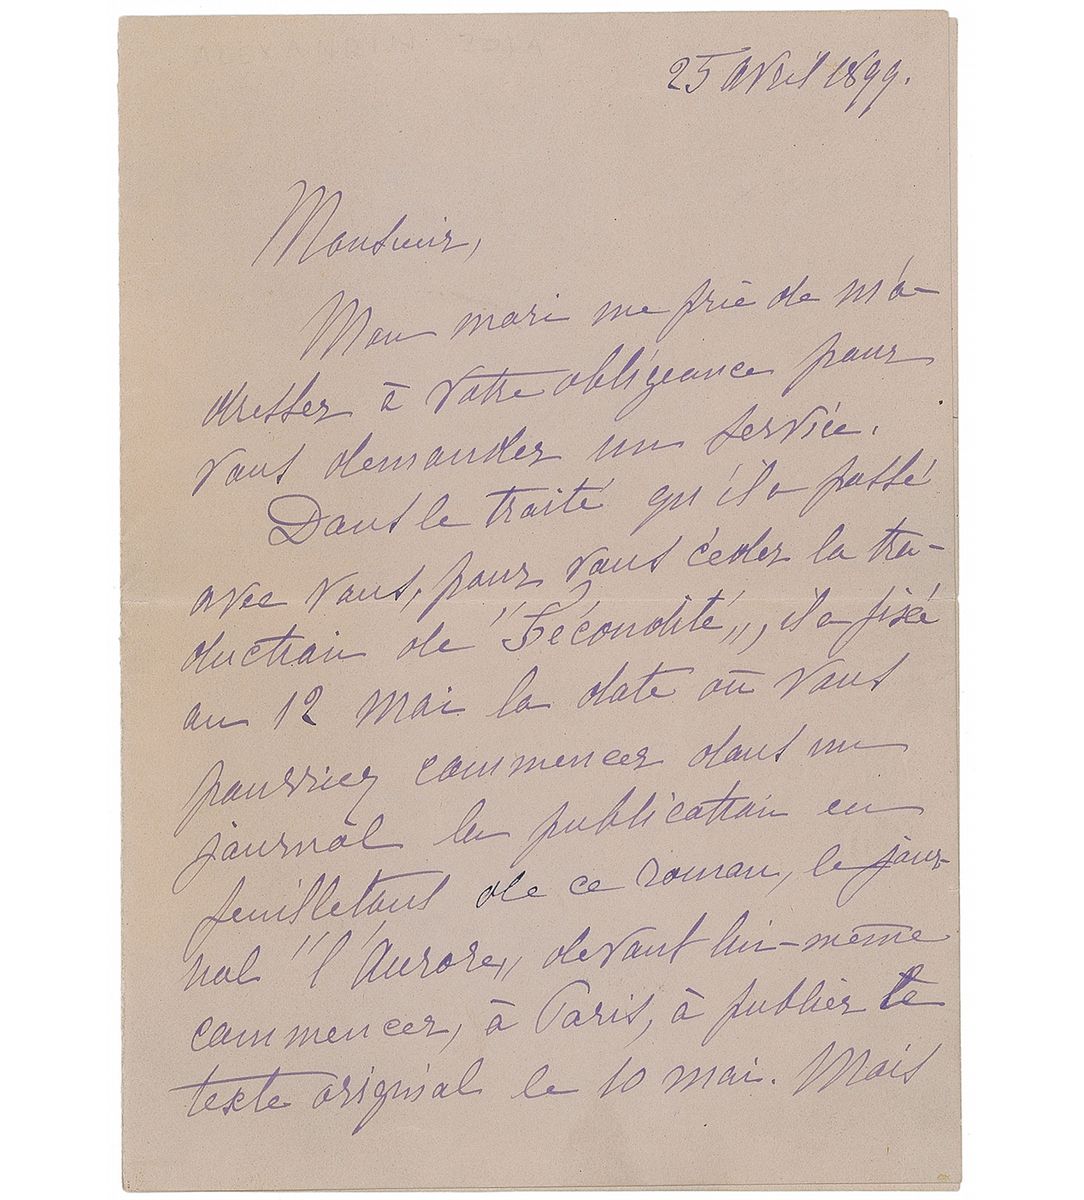 25 Avril 1899.
Monsieur,
Mon mari me prie de m'a-
dresser à votre obligeance pour
vous demander un service.
Dans le traité qu'il a passé
avec vous, pour vous céder la tra-
duction de "Fécondité", il a fixé
au 12 mai la date où vous
pourriez commencer dans un
journal la publication en
feuilletons de ce roman, le jour-
nal "l'Aurore" devant lui-même
commencer, à Paris, à publier le
texte original le 10 mai. Mais